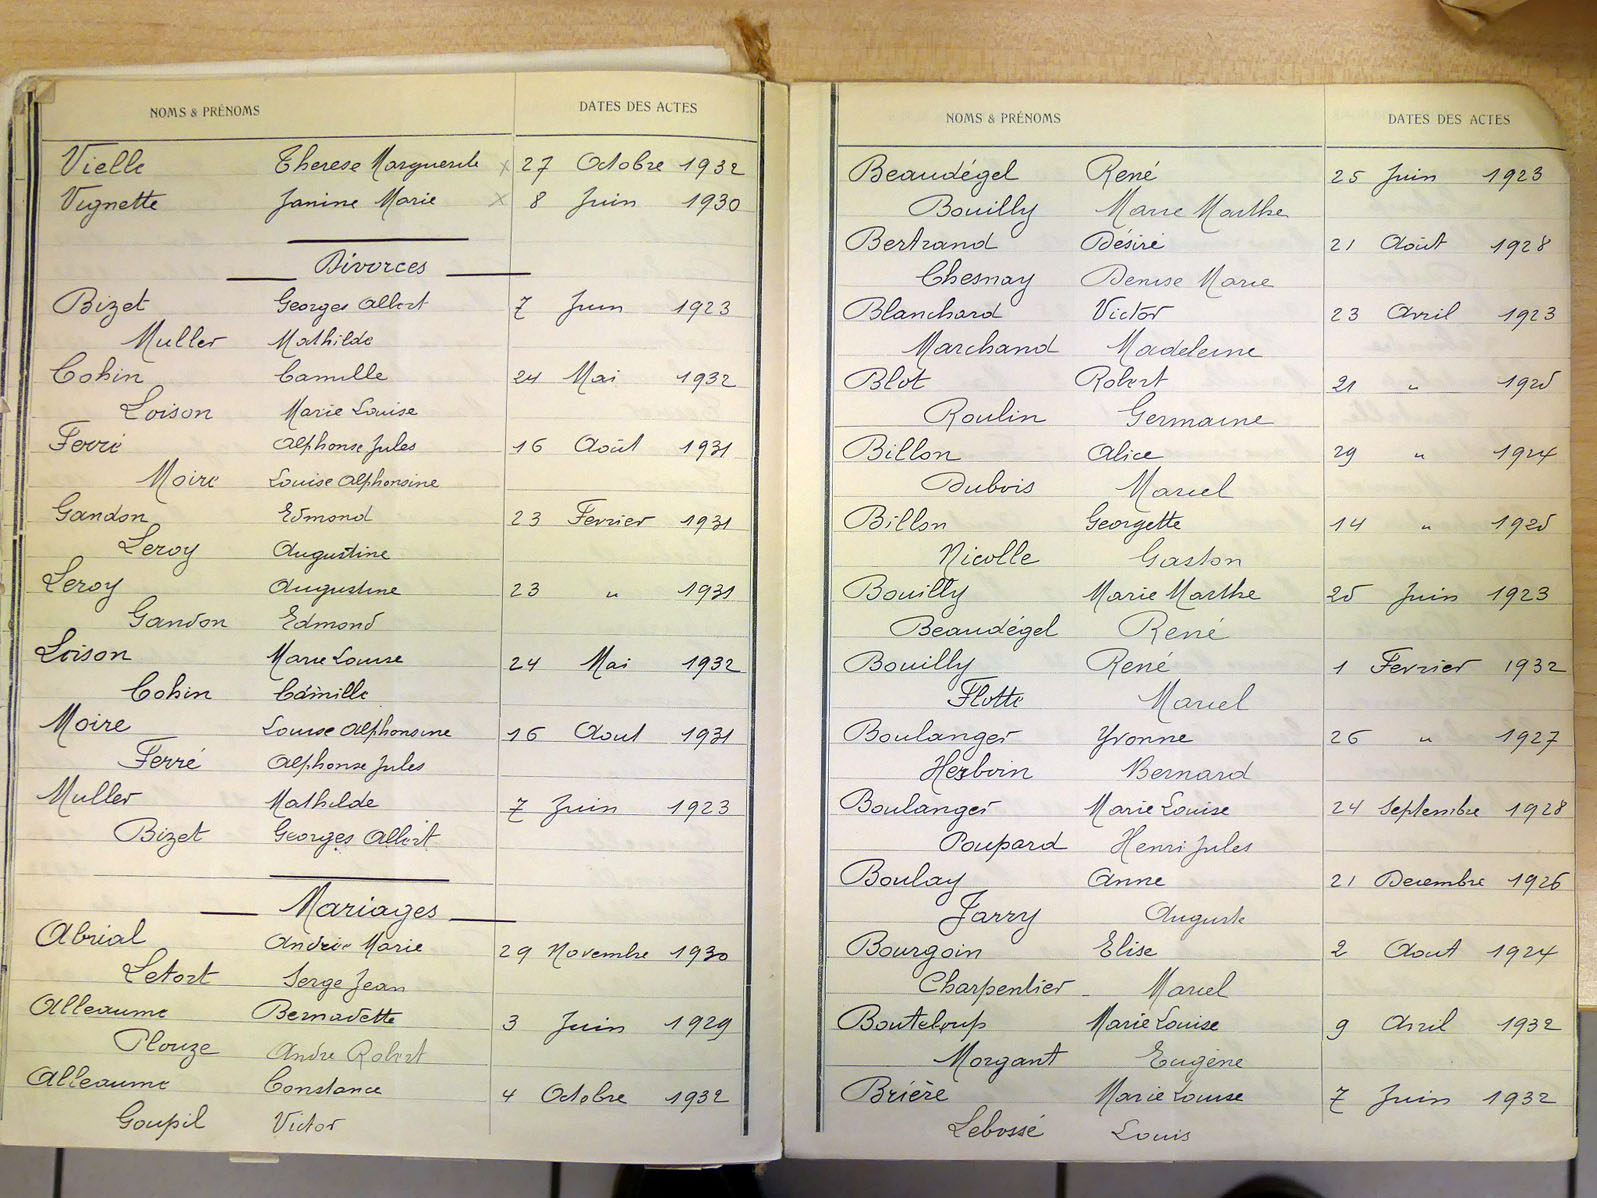 NOMS & PRÉNOMS DATES DES ACTES
Vielle Therese Marguerite x 27 Octobre 1932
Vignette Janine Marie x 8 Juin 1930
Divorces
Bizet Georges Albert 7 Juin 1923
Muller Mathilde
Cohin Camille 24 Mai 1932
Loison Marie Louise
Ferré Alphonse Jules 16 Août 1931
Moire Louise Alphonsine
Gandon Edmond 23 Fevrier 1931
Leroy Augustine
Leroy Augustine 23 " 1931
Gandon Edmond
Loison Marie Louise 24 Mai 1932
Cohin Camille
Moire Louise Alphonsine 16 Aout 1931
Ferré Alphonse Jules
Muller Mathilde 7 Juin 1923
Bizet Georges Albert
Mariages
Abrial Andrée Marie 29 Novembre 1930
Letort Serge Jean
Alleaume Bernadette 3 Juin 1929
Plouze Andre Robert
Alleaume Constance 4 Octobre 1932
Goupil Victor
NOMS & PRÉNOMS DATES DES ACTES
Beaudégel René 25 Juin 1923
Bouilly Marie Marthe
Bertrand Désiré 21 Août 1928
Chesnay Denise Marie
Blanchard Victor 23 Avril 1923
Marchand Madeleine
Blot Robert 21 " 1925
Roulin Germaine
Billon Alice 29 " 1924
Dubois Marcel
Billon Georgette 14 " 1925
Nicolle Gaston
Bouilly Marie Marthe 25 Juin 1923
Beaudégel René
Bouilly René 1 Fevrier 1932
Flotte Marcel
Boulanger Yvonne 26 " 1927
Herboin Bernard
Boulanger Marie Louise 24 Septembre 1928
Poupard Henri Jules
Boulay Anne 21 Decembre 1926
Jarry Auguste
Bourgoin Elise 2 Aout 1924
Charpentier Marcel
Bouteloup Marie Louise 9 Avril 1932
Morgant Eugène
Brière Marie Louise 7 Juin 1932
Lebossé Louis